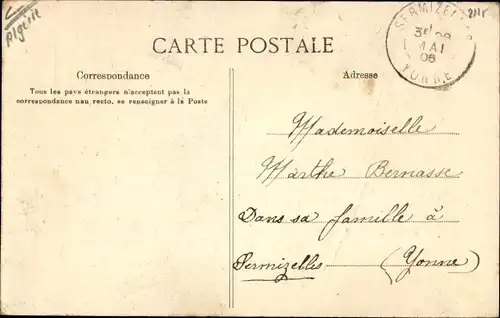 Algérie
CARTE POSTALE
SERMIZELLES
MAI
08
YONNE
Correspondance
Tous les pays étrangers n'acceptent pas la
correspondance nau recto, se renseigner à la Poste
Adresse
Mademoiselle
Marthe Bernasse
Dans sa famille à
Sermizelles (Yonne)